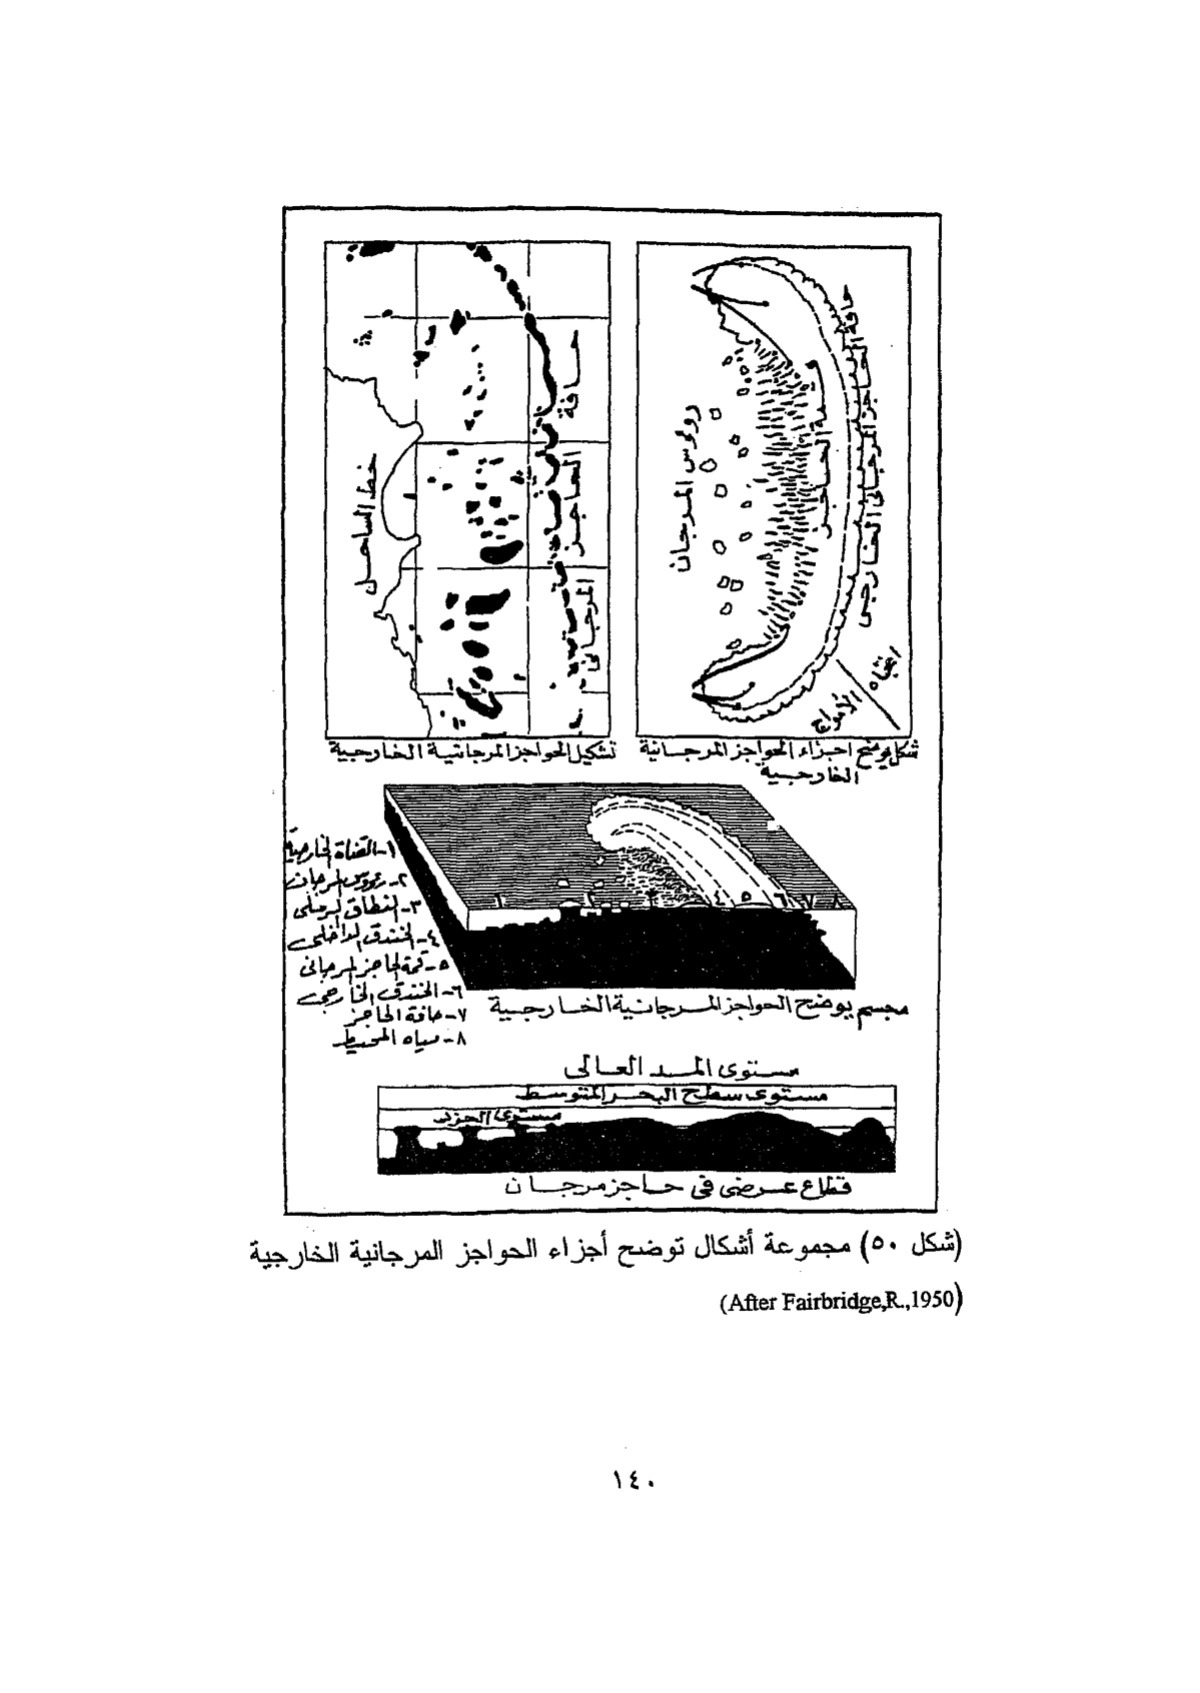 حافة الحاجز المرجانى الخارجى
قمة الحاجز
رووس المرجان
اتجاه
الأمواج
حافة الحاجز المرجانى
خط الساحل
شكل يوضح اجزاء الحواجز المرجانية
الخارجية
تشكيل الحواجز المرجانية الخارجية
١ ٢ ٣ ٤ ٥ ٦ ٧ ٨
١- القناة الخارجية
٢- رؤوس المرجان
٣- النطاق الرملى
٤- الخندق الداخلى
٥- قمة الحاجز المرجانى
٦- الخندق الخارجى
٧- حافة الحاجز
٨- مياه المحيط
مجسم يوضح الحواجز المرجانية الخارجية
مستوى المد العالى
مستوى سطح البحر المتوسط
مستوى الجزر
قطاع عرضى فى حاجز مرجان
(شكل ٥٠) مجموعة أشكال توضح أجزاء الحواجز المرجانية الخارجية
(After Fairbridge,R.,1950)
١٤٠